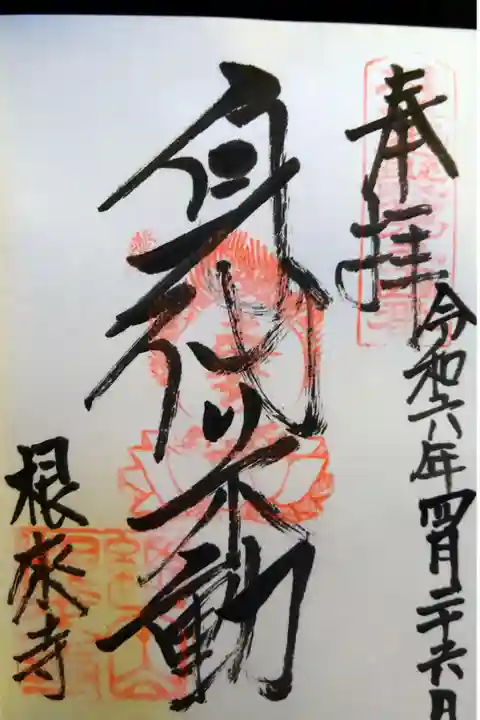 奉拝
令和六年四月二十六日
身代不動
根來寺